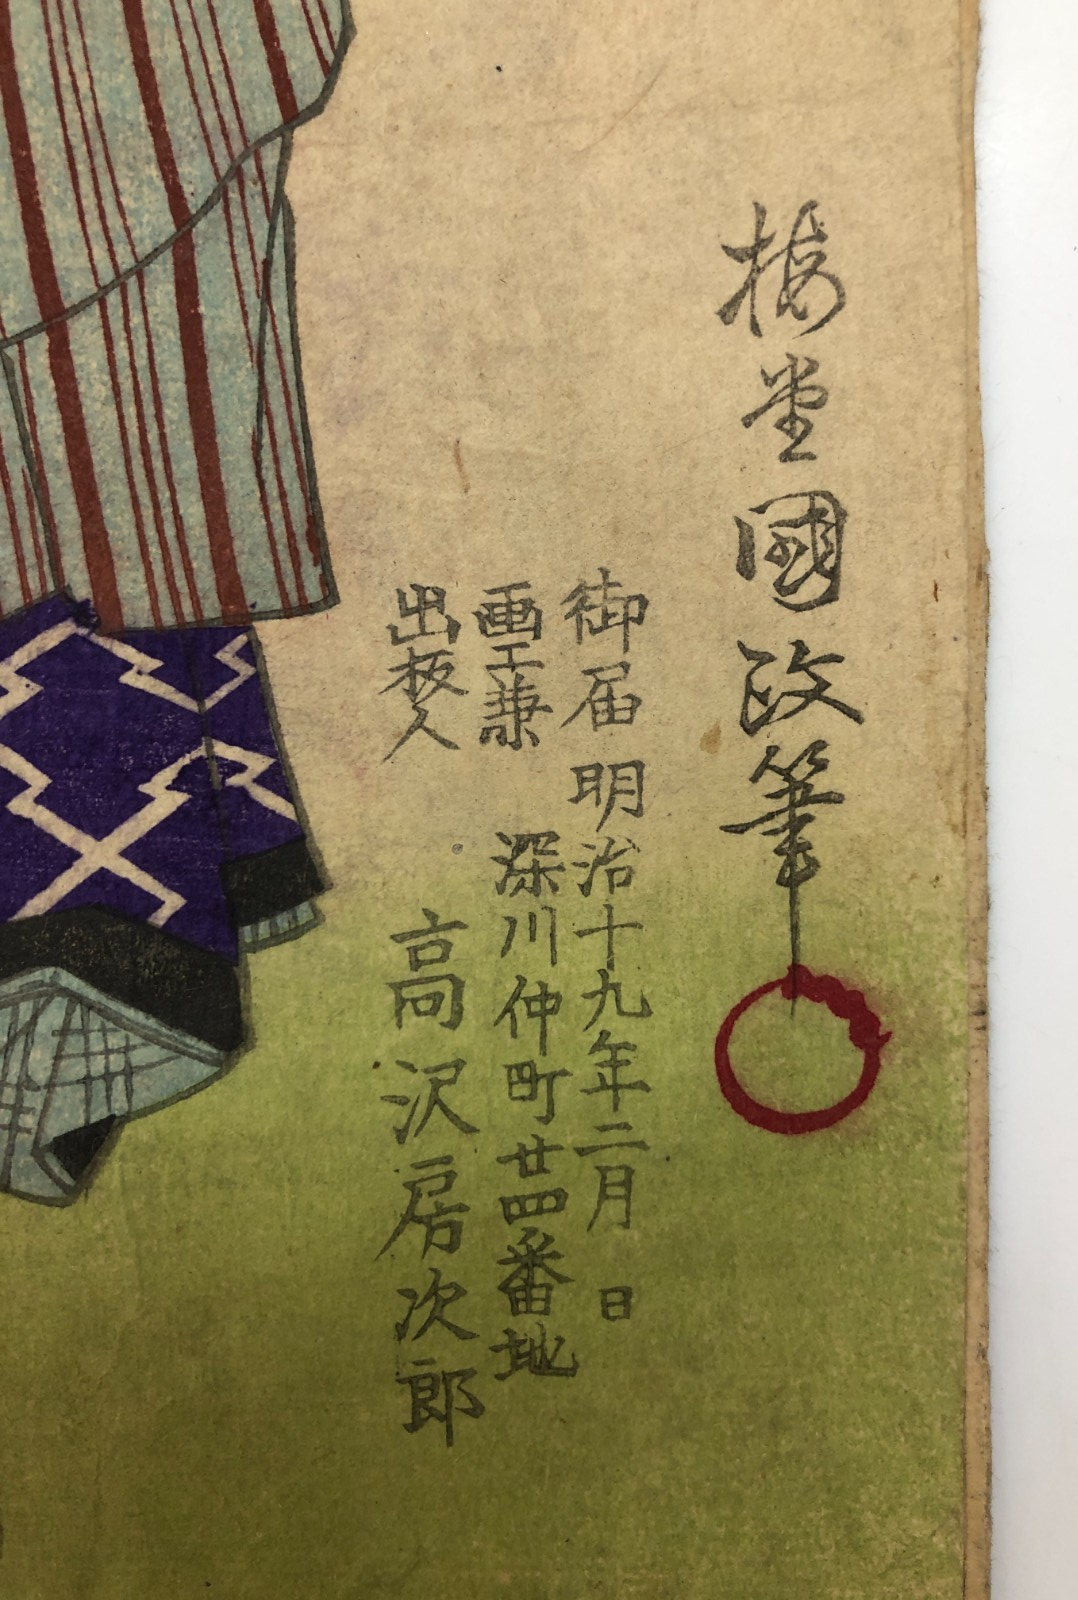 梅堂國政筆
御届明治十九年二月 日
画工兼 深川仲町廿四番地
出板人 高沢房次郎